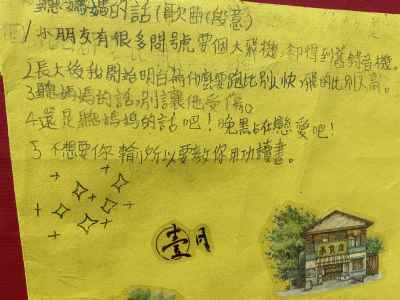 聽媽媽的話(歌曲啟意)
1/小朋友有很多問號要個大飛機,卻得到舊錄音機。
2/長大後我開始明白為什麼要跑比別人快,飛的比別人高。
3聽媽媽的話,別讓他受傷。
4還是聽媽媽的話吧!晚點在戀愛吧!
5 不想要你輸,所以要教你用功讀書。
壹月